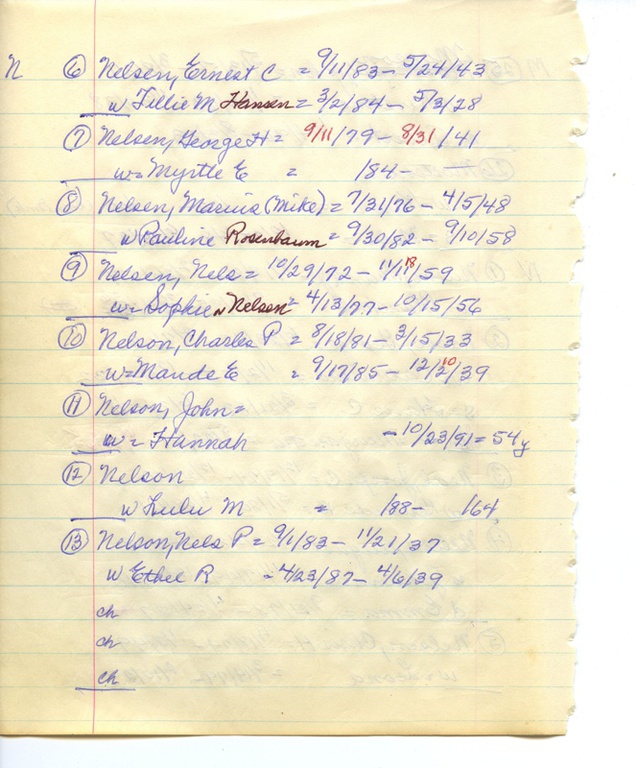 N ⑥ Nelsen, Ernest C = 9/11/83 - 5/24/43
w Tillie M Hansen = 3/2/84 - 5/3/28
⑦ Nelsen, George H = 9/11/79 - 8/31/41
w = Myrtle E = /84 -
⑧ Nelsen, Marius (Mike) = 7/31/76 - 4/5/48
w Pauline Rosenbaum = 9/30/82 - 9/10/58
⑨ Nelsen, Nels = 10/29/72 - 11/18/59
w = Sophie Nelsen = 4/13/77 - 10/15/56
⑩ Nelson, Charles P = 8/18/81 - 3/15/33
w = Maude E = 9/17/85 - 12/10/39
⑪ Nelson, John =
w = Hannah - 10/23/91 = 54y
⑫ Nelson
w Lulu M = /88 - /64
⑬ Nelson, Nels P = 9/1/83 - 11/21/37
w Ethel R = 4/23/87 - 4/6/39
ch
ch
ch